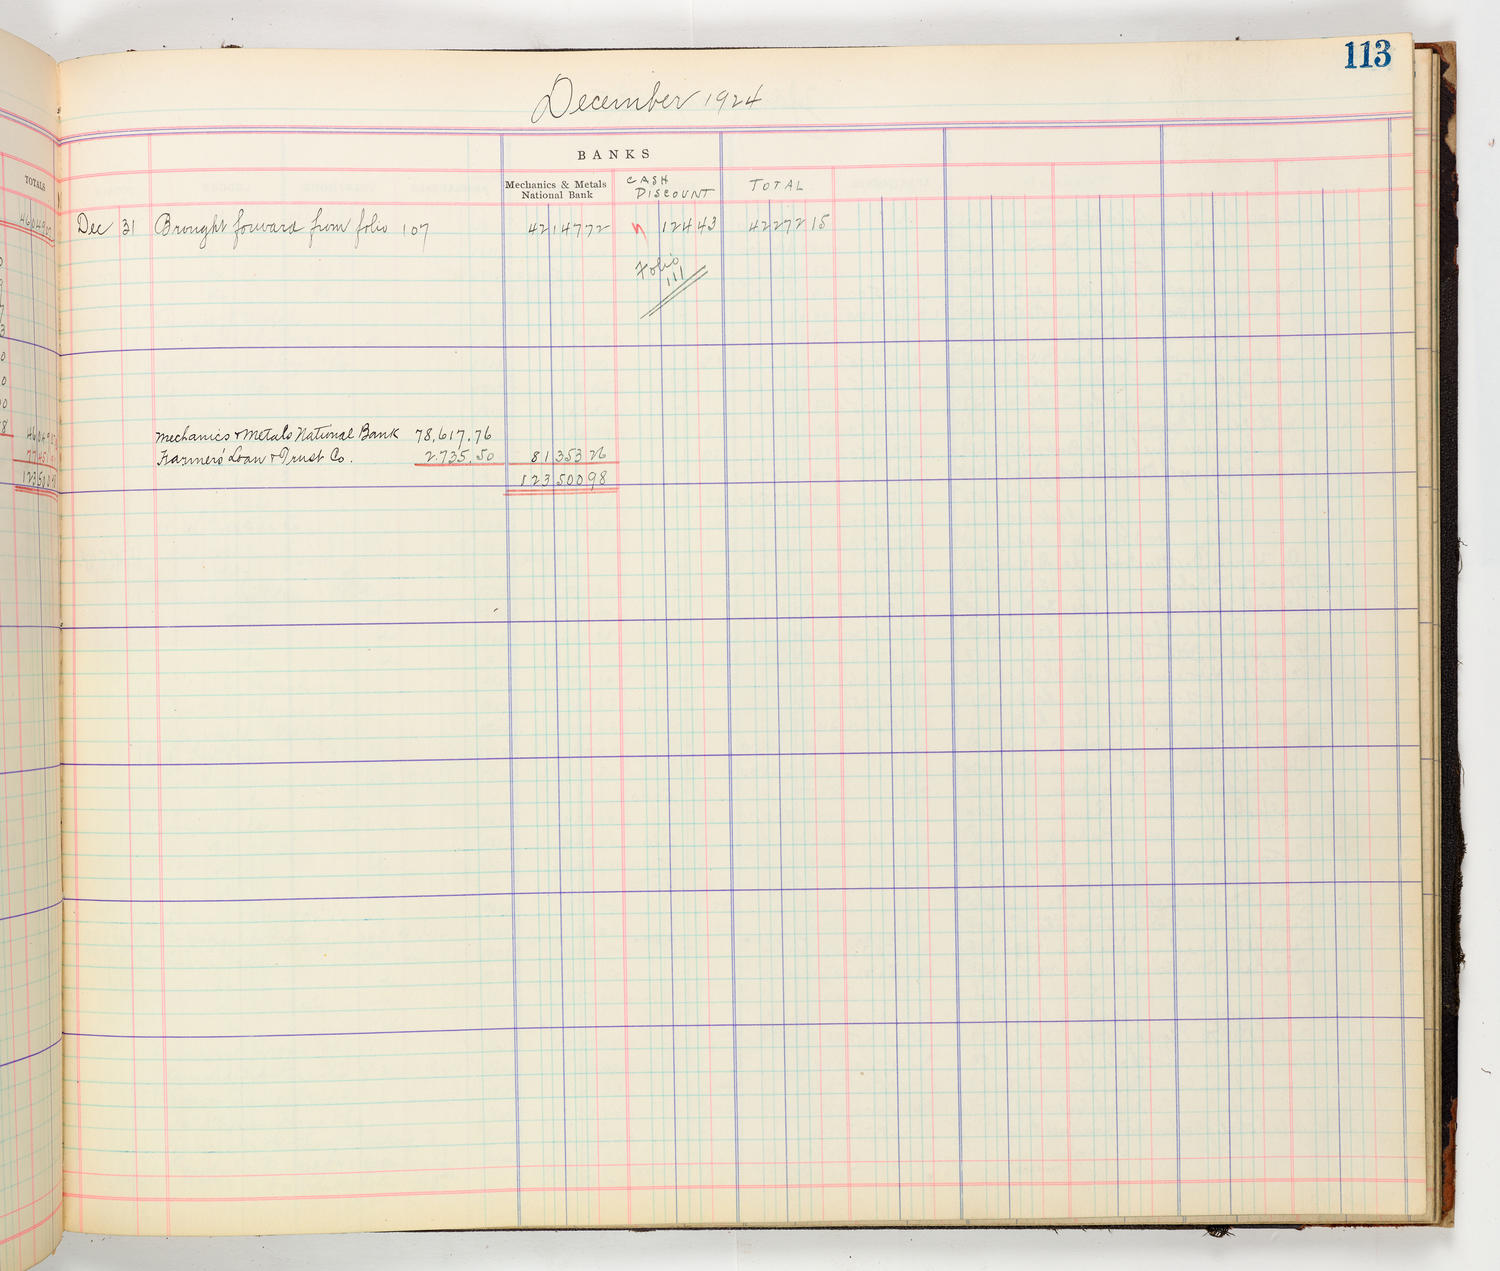 113
December 1924
BANKS
TOTALS
Mechanics & Metals
National Bank
CASH
DISCOUNT
TOTAL
Dec 31 Brought forward from folio 107 42147 72 124 43 42272 15
Folio
111
Mechanics & Metals National Bank 78,617.76
Farmers' Loan & Trust Co. 2.735.50 81353 26
123500 98